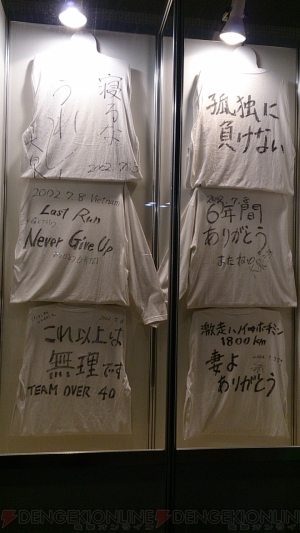 寝るな
うれしー
2002.7.
2002.7.8 Vietnam
Last Run
Never Give Up
これ以上は
無理です
TEAM OVER 40
孤独に
負けない
6年間
ありがとう
またね
激走ハノイ⇒ホーチミン
1800km
妻よ
ありがとう
DENGEKIONLINE
DENGEKIONLINE